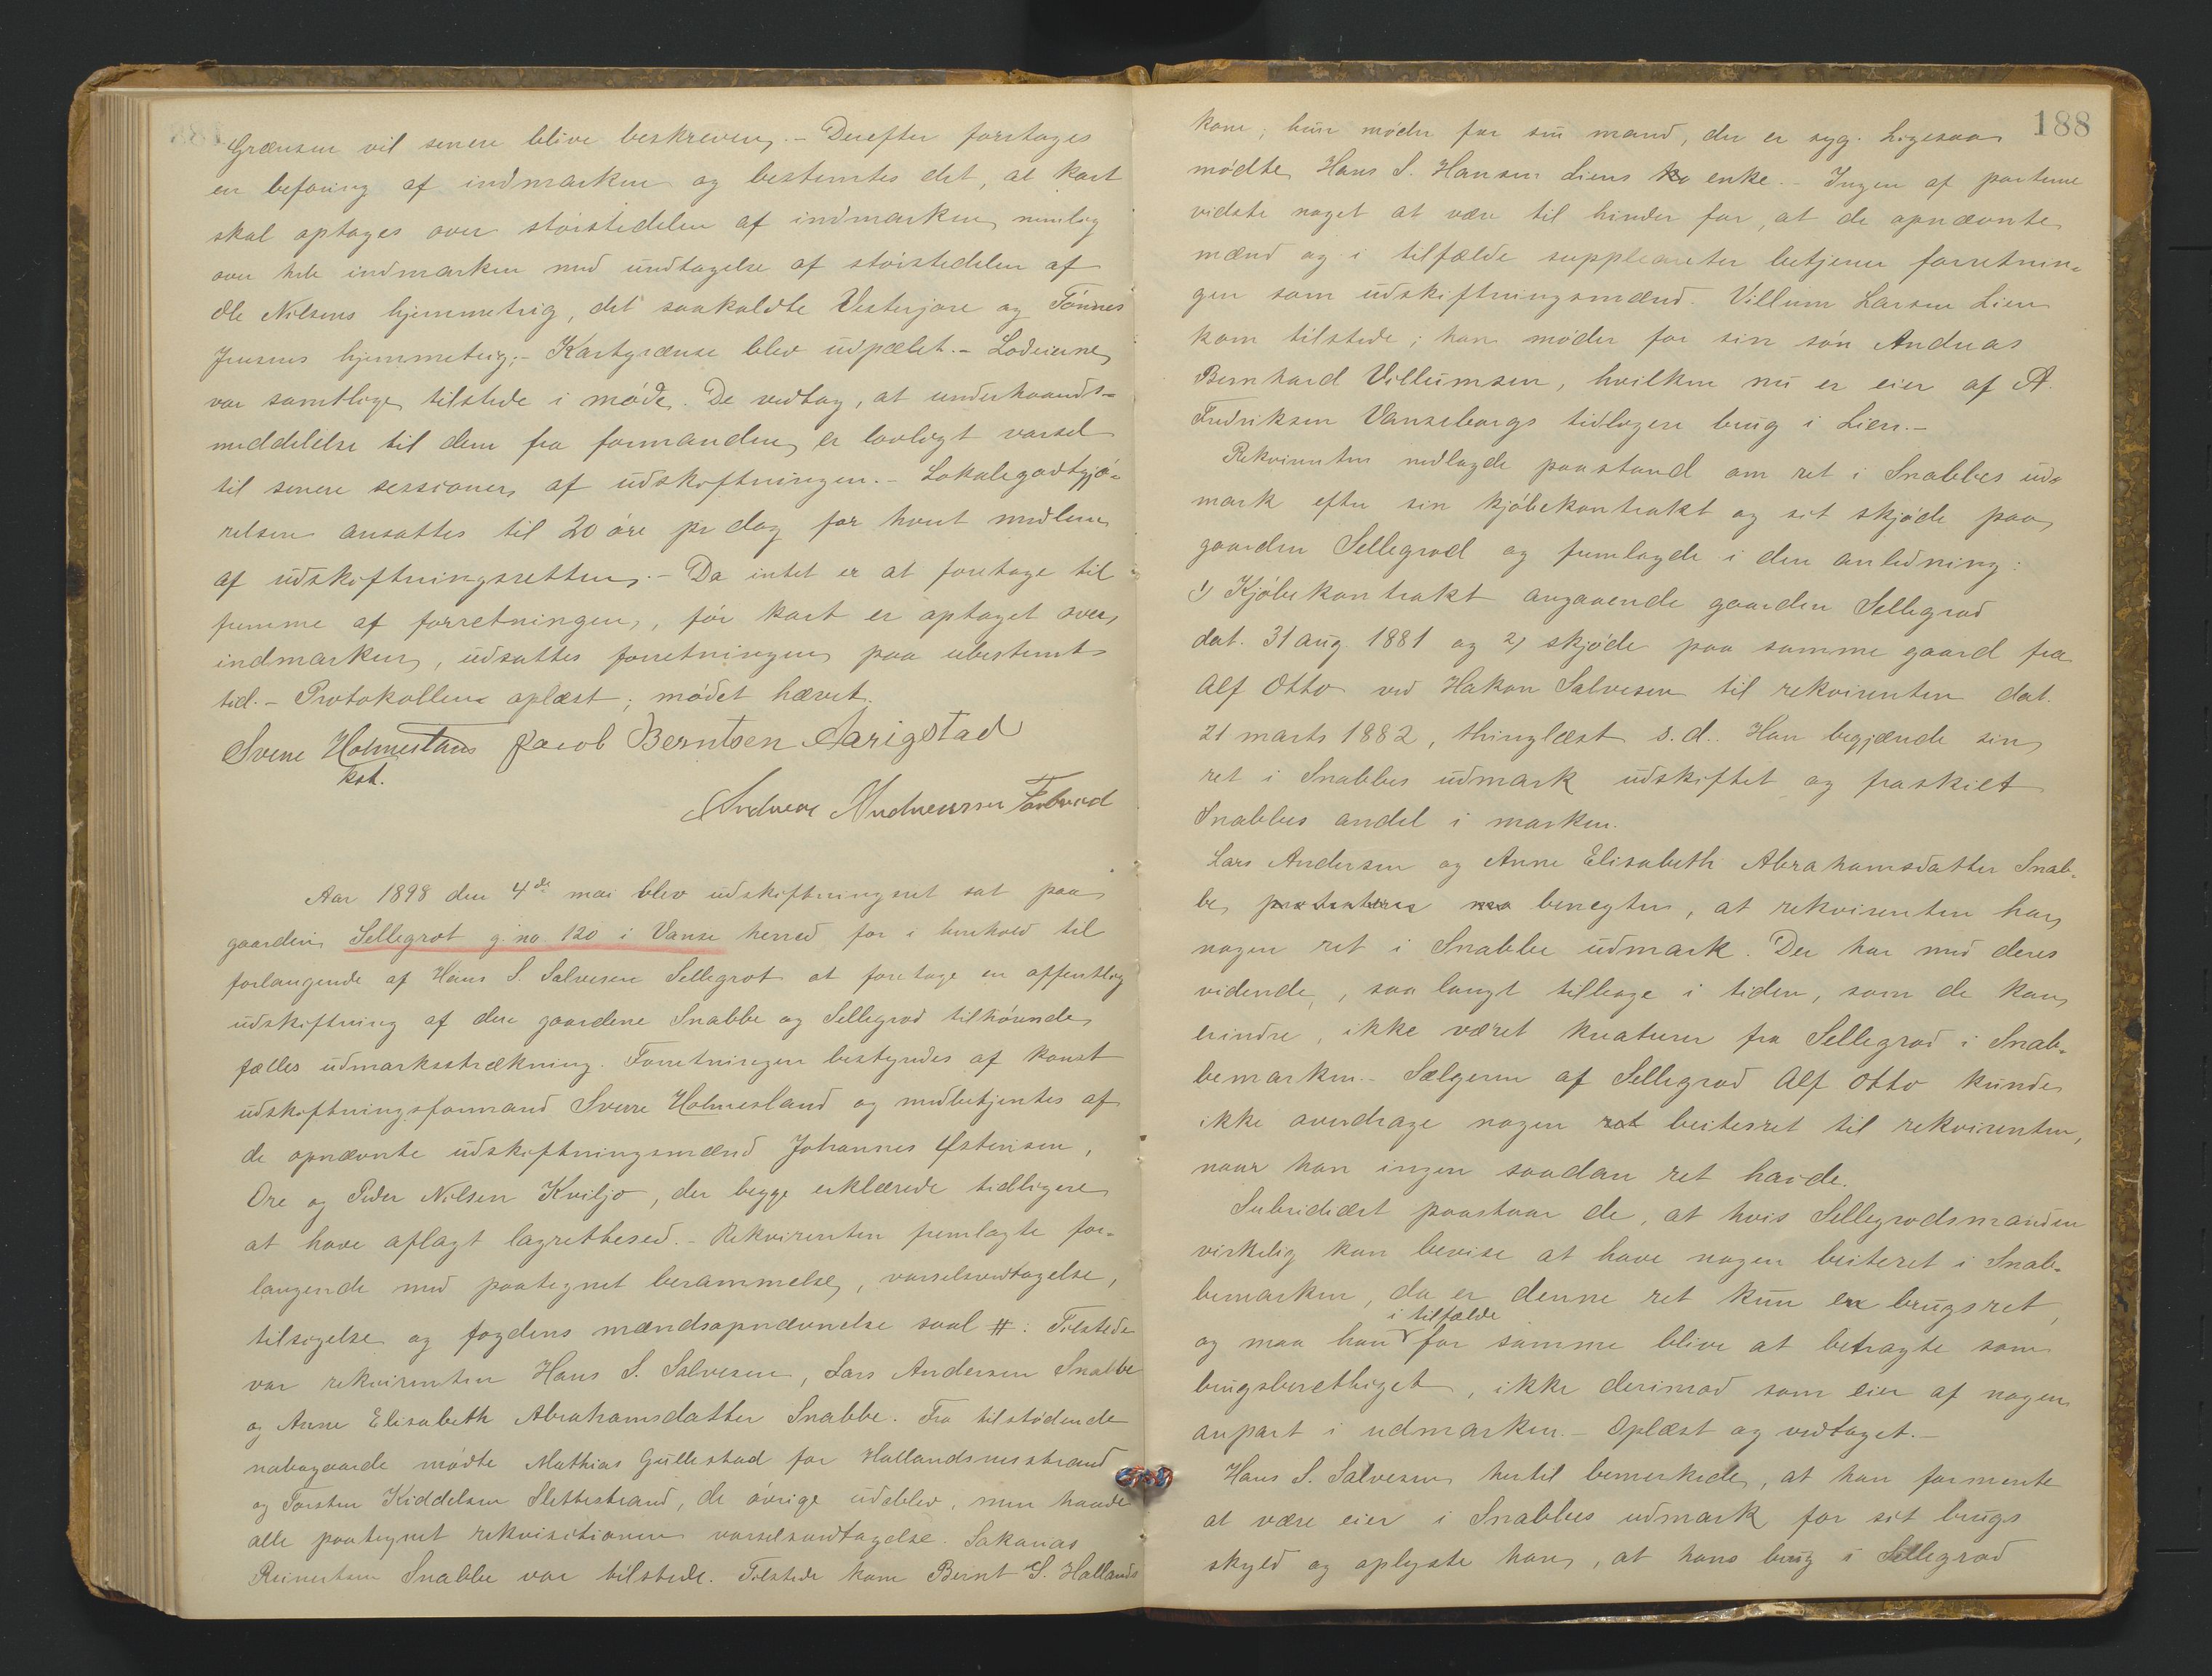 Grænsen vil senere blive beskreven. - Derefter foretoges
en befaring af indmarken og bestemtes det, at kart
skal optages over störstedelen af indmarken, nemlig
over hele indmarken med undtagelse af störstedelen af
Ole Nilsens hjemmeteig, det saakaldte Vesterjore og Tönnes
Jensens hjemmeteig; - Kartgrænse blev udpælet. - Lodeierne
var samtlige tilstede i møde. De vedtog, at underhaands-
meddelelse til dem fra formanden er lovligt varsel
til senere sessioner af udskiftningen. - Lokalegodtgjö-
relsen ansattes til 20 öre pr dag for hvert medlem
af udskiftningsretten. - Da intet er at foretage til
fremme af forretningen, för kart er optaget over
indmarken, udsattes forretningen paa ubestemt
tid. - Protokollen oplæst; mödet hævet.
Sverre Holmesland Jacob Berntsen Aarigstad
kst.
Andreas Andreassen
Aar 1898 den 4de mai blev udskiftningsret sat paa
gaarden Sellegrot g. no 120 i Vanse herred for i henhold til
forlangende af Hans S. Salvesen Sellegrot at foretage en offentlig
udskiftning af den gaardene Snabbe og Sellegrod tilhörende
fælles udmarksstrækning. Forretningen bestyredes af konst
udskiftningsformand Sverre Holmesland og medbetjentes af
de opnævnte udskiftningsmænd Johannes Østensen,
Ore og Peder Nilsen Kviljo, der begge erklærede tidligere
at have aflagt lagrettesed. - Rekvirenten fremlagte for-
langende med paategnet berammelse, varselsvedtagelse,
tilsigelse og fogdens mændsopnævnelse saal #: Tilstede
var rekvirenten Hans S. Salvesen, Lars Andersen Snabbe
og Anne Elisabeth Abrahamsdatter Snabbe. Fra tilstödende
nabogaarde mödte Mathias Gullestad for Hallandsnesstrand
og Torsten Kiddelsen Slettestrand, de övrige udeblev, men havde
alle paategnet rekvisitionen varselsvedtagelse. Sakarias
Reinertsen Snabbe var tilstede. Tilstede kom Bernt S. Hallands
188
kone; hun möder for sin mand, der er syg. Ligesaa
mödte Hans S. Hansen Liens ko enke. - Ingen af parterne
vidste noget at være til hinder for, at de opnævnte
mænd og i tilfælde suppleanter betjener forretnin-
gen som udskiftningsmænd. Villum Larsen Lien
kom tilstede; han möder for sin sön Andreas
Bernhard Villumsen, hvilken nu er eier af A.
Fredriksen Vanseborgs tidligere brug i Lien. -
Rekvirenten nedlagde paastand om ret i Snabbes ud-
mark efter sin kjöbekontrakt og sit skjöde paa
gaarden Sellegrod og fremlagde i den anledning:
1) Kjöbekontrakt angaaende gaarden Sellegrod
dat. 31 aug 1881 og 2) skjöde paa samme gaard fra
Alf Otto ved Hakon Salvesen til rekvirenten dat.
21 marts 1882, thinglæst s.d.. Han begjærede sin
ret i Snabbes udmark udskiftet og fraskilt
Snabbes andel i marken.
Lars Andersen og Anne Elisabeth Abrahamsdatter Snab-
be benegter, at rekvirenten har
nogen ret i Snabbe udmark. Der har med deres
vidende, saa langt tilbage i tiden, som de kan
erindre, ikke været kreaturer fra Sellegrod i Snab-
bemarken. - Sælgeren af Sellegrod Alf Otto kunde
ikke overdrage nogen ret beitesret til rekvirenten,
naar han ingen saadan ret havde.
Subsidiært paastaar de, at hvis Sellegrodsmanden
virkelig kan bevise at have nogen beiteret i Snab-
bemarken, da er denne ret kun en brugsret,
i tilfælde
og maa han for samme blive at betragte som
brugsberettiget, ikke derimod som eier af nogen
anpart i udmarken. - Oplæst og vedtaget. -
Hans S. Salvesen hertil bemerkede, at han formente
at være eier i Snabbes udmark for sit brugs
skyld og oplyste han, at hans brug i Sellegrod